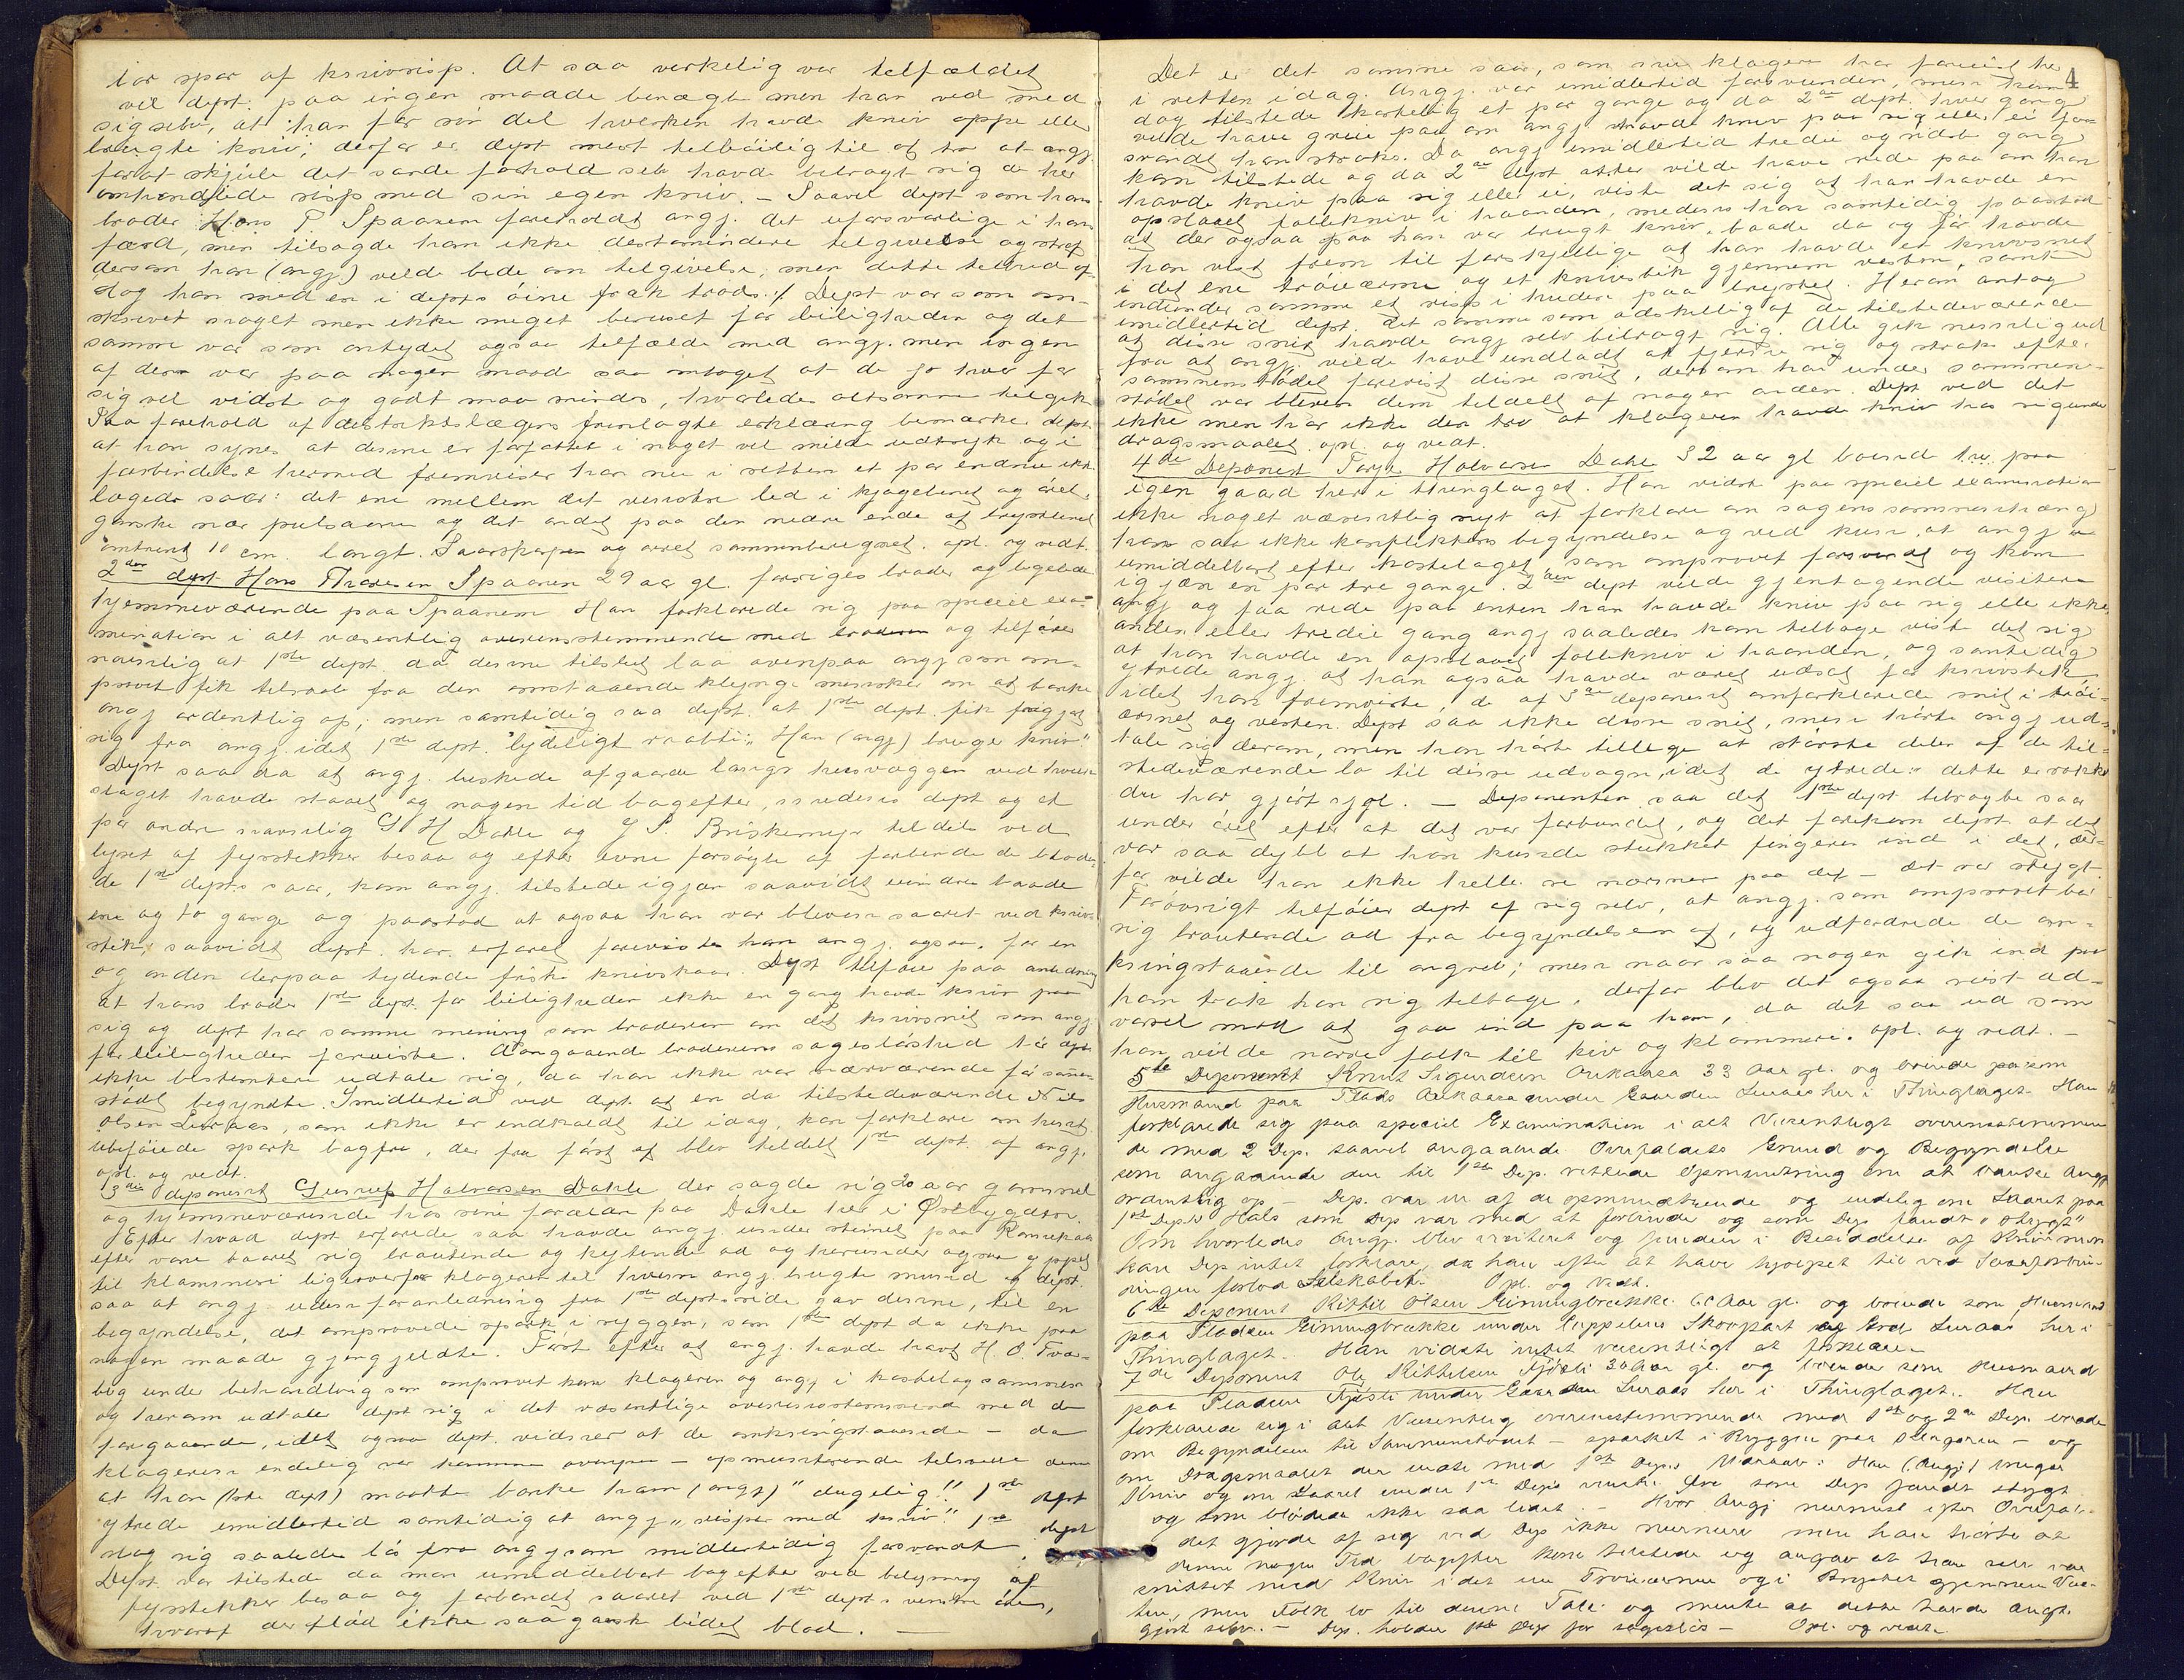 lar spor af knivrisp. At saa verkelig var telfældet
vil dept. paa ingen maade benægte men han ved med
sig selv, at han for sin del hverken havde kniv oppe eller
brugte kniv; derfor er dept mest telbøielig til at tro at angj.
for at skjule det sande forhold selv havde bebragt sig de her
omhandlede risp med sin egen kniv. – Saavel dept som hans
broder Hans T. Spaanem foreholdt angj. det uforsvarlige i hans
færd, men tilsagde ham ikke destomindere telgivelse og straf
dersom han (angj) velde bede om telgivelse, men dette
slog han med en i depts øine fræk trods. Dept var som om-
skrevet noget men ikke meget beruset for leiligheden og det
samme var som antydet ogsaa telfælde med angj. men ingen
af dem var paa nogen maade saa meget at de jo hver for
sig vel vidste og godt maa mindes, hvorledes altsamme telgik
Paa forehold af destriktslægens fremlagte erklæring bemærker dept
at han synes at denne er forfattet i noget vel milde udtryk og i
forbindelse hermed fremviser han nu i retten et par endnu ikke
lægede saar: det ene mellem det venstre led i kjagebenet og øret,
ganske nær pulsaaren og det andet paa den nedre ende af brystbenet
omtrent 10 cm. langt. Saarskorpen og arret sammenberegnet. opl. og vedt.
2den dept Hans Thoresen Spaanem 29 aar gl. forriges broder og ligeledes
hjemmeværende paa Spaanem Han forklarede sig paa speciel exa-
mination i alt væsentlig overensstemmende med broderen og telføier
navnlig at 1ste dept. da denne tilslut laa ovenpaa angj som om-
prøvet fik telraab fra den omstaaende klynge mennesker om at banke
angj ordentlig op; men samtidig saa dept. at 1ste dept. fik frigjort
sig fra angj. idet 1ste dept. lydeligt raabte: "Han (angj) bruger kniv"
Dept saa da at angj. luskede afgaarde langs husvæggen ved hvilken
slaget havde staaet og nogen tid bagefter, medens dept og et
par andre navnlig G H Dahle og T. P. Briskemyr teldels ved
lyset af fyrstekker besaa og efter evne forsøgte at forbinde de blødende
1ste depts saar, kom angj. tilstede igjen saavidt mindes baade
ene og to gange og paastod at ogsaa han var bleven saaret ved kniv-
stik; saavidt dept. har erfaret foreviste han angj. ogsaa, for en
og anden derpaa tydende friske knivskaar. Dept telføier paa anledning
at hans broder 1ste dept. for leiligheden ikke en gang havde kniv paa
sig og dept har samme mening som broderen om det knivsnit som angj
for leiligheden foreviste. Aangaaende broderens sagesløshed tør dept
ikke bestemtere udtale sig, da han ikke var nærværende før sammen-
stødet begyndte. Imidlertid ved dept. at en da tilstedeværende Nils
Olsen Luraas, som ikke er indkaldt til idag, kan forklare om hint
ubeføiede spark bagfra, der fra først af blev teldelt 1ste dept. af angj.
opl. og vedt.
3die deponent Gunnuf Halvorsen Dahle der sagde sig 20 aar gammel
og hjemmeværende hos sine forældre paa Dahle her i Østbygden.
Efter hvad dept erfarede saa havde angj under steinet paa Romsaas
efter vane baaret sig brautende og kytende ad og herunder ogsaa yppet
til klammeri ligeoverfor klageren tel hvem angj. brugte mund og dept.
saa at angj. uden foranledning fra 1ste depts side gav denne, til en
begyndelse, det omprøvede spark i ryggen, som 1ste dept da ikke paa
nogen maade gjengjeldte. Først efter at angj. havde havt H. O. Tvee-
big under behandling som omprøvet kom klageren og angj i kastelag sammen
og herom udtaler dept sig i det væsentlige overensstemmende med de
foregaaende, idet ogsaa dept. vidner at de omkringstaaende – da
klageren endelig var kommen ovenpaa – opmuntrende telraabte denne
at han (1ste dept) maatte banke ham (angj) "dugelig". 1ste dept
ytrede imidlertid samtidig at angj "risper med kniv". 1ste dept
slog sig saaledes løs fra angj som midlertidig forsvandt.
Dept. var tilstede da man umiddelbart bagefter ved belysning af
fyrstekker besaa og forbandt saaret ved 1ste depts venstre øre,
hvoraf der flød ikke saa ganske lidet blod. –
4
Det er det samme saar, som nu klageren har forevist her
i retten idag. Angj. var imidlertid forsvunden, men kom
dog tilstede kortelig et par gange og da 2den dept. hver gang
vilde have greie paa om angj havde kniv paa sig eller ei for-
svandt han straks. Da angj imidlertid tredie og sidste gang
kom tilstede og da 2den dept atter vilde have rede paa om han
havde kniv paa sig eller ei, viste det sig at han havde en
opslaaet follekniv i haanden, medens han samtidig paastod
at der ogsaa paa ham var brugt kniv, baade da og før havde
han vist frem til forskjellige at han havde et knivsnit
i det ene trøieærme og et knivstik gjennem vesten, samt
indunder samme et risp i huden paa brystet. Herom antog
imidlertid dept. det samme som adskellige af de tilstedeværende
at disse snit havde angj selv bebragt sig. Alle gik nemlig ud
fra at angj. vilde have undladt at fjerne sig og straks efter
sammenstødet forevist disse snit, dersom han under sammen-
stødet var bleven dem teldelt af nogen anden. Dept ved det
ikke men har ikke den tro at klageren havde kniv hos sig under
dragsmaalet. opl. og vedt.
4de Deponent Torje Halvorsen Dahle 32 aar gl boende her paa
egen gaard her i thinglaget. Han vidste paa speciel examination
ikke noget væsentlig nyt at forklare om sagens sammenhæng
han saa ikke konfliktens begyndelse og ved kun at angj
umiddelbart efter kastelaget, som omprøvet forsvandt og kom
igjen en par tre gange. 2den dept vilde gjentagende visitere
angj og faa rede paa enten han havde kniv paa sig eller ikke
anden eller tredie gang angj saaledes kom telbage viste det sig
at han havde en opslaaet follekniv i haanden, og samtidig
ytrede angj. at han ogsaa havde været udsat for knivstik
idet han fremviste, de af 3die deponent omforklarede snit i trøi-
ærmet og vesten. Dept saa ikke disse snit, men hørte angj ud-
tale sig derom, men han hørte tillige at største delen af de til-
stedeværende lo til disse udsagn, idet de ytrede: dette er noke
du har gjørt sjøl. – Deponenten saa det 1ste dept bebragte saar
under øret efter at det var forbundet, og det forekom dept. at det
var saa dybt at han kunde stukket fingeren ind i det, der-
for vilde han ikke heller se nærmer paa det – det var stygt.
Forøvrigt telføier dept af sig selv, at angj. som omprøvet bar
sig brautende ad fra begyndelsen af, og udfordrede de om-
kringstaaende til angreb; men naar saa nogen gik ind paa
ham trak han sig telbage, derfor blev det ogsaa vist ad-
varet mod at gaa ind paa ham, da det saa ud som
han vilde narre folk til kiv og klammeri. opl. og vedt. –
5te Deponent Knut Sigurdsen Aukaasa 33 Aar gl. og boende som
Husmand paa Plads Aukaasa under Gaarden Luraas her i Thinglaget. Han
forklarede sig paa speciel Examination i alt Væsentligt overensstemmen-
de med 2 Dep. saavel angaaende Overfaldets Grund og Begyndelse
som angaaende den til 1ste Dep. rettede Opmuntring om at banke Angj
ordentlig op – Dep. var en af de opmuntrende og endelig om Saaret paa
1ste Dep's Hals som Dep var med at forbinde og som Dep fandt "stygt"
Om hvorledes Angj. blev visiteret og funden i Besiddelse af Kniv
kan Dep intet forklare, da han efter at have hjulpet til ved Saarforbin-
dingen forlod Selskabet. Opl. og Vedt.
6te Deponent Kittil Olsen Einungbrække 60 Aar gl. og boende som Husmand
paa Pladsen Einungbrække under Cappelens Skovpart af Grd Luraas her i
Thinglaget. Han vidste intet væsentligt at forklare
7de Deponent Ole Kittelsen Fjösli 30 Aar gl. og boende som Husmand
paa Pladsen Fjösli under Gaarden Luraas her i Thinglaget. Han
forklarede sig i alt Væsentlig overensstemmende med 1ste og 2den Dep. baade
om Begyndelsen til Sammenstødet – sparket i Ryggen paa Klageren – og
om Dragsmaalet der endte med 1ste Dep.s Udraab: Han (Angj) bruger
Kniv og om Saaret under 1ste Dep's venstre Øre som Dep fandt stygt
og som blødede ikke saa lidet. – Hvor Angj nærmest efter Overfal-
det gjorde af sig ved Dep ikke nærmere men han hørte at
denne nogen Tid bagefter kom tilstede og angav at han selv var
snittet med Kniv i det ene Trøieærme og i Brystet gjennem Ves-
ten, men Folk lo til denne Tale og mente at dette havde Angj.
gjort selv. – Dep. holder 1ste Dep for sagesløs – Opl. og vedt.